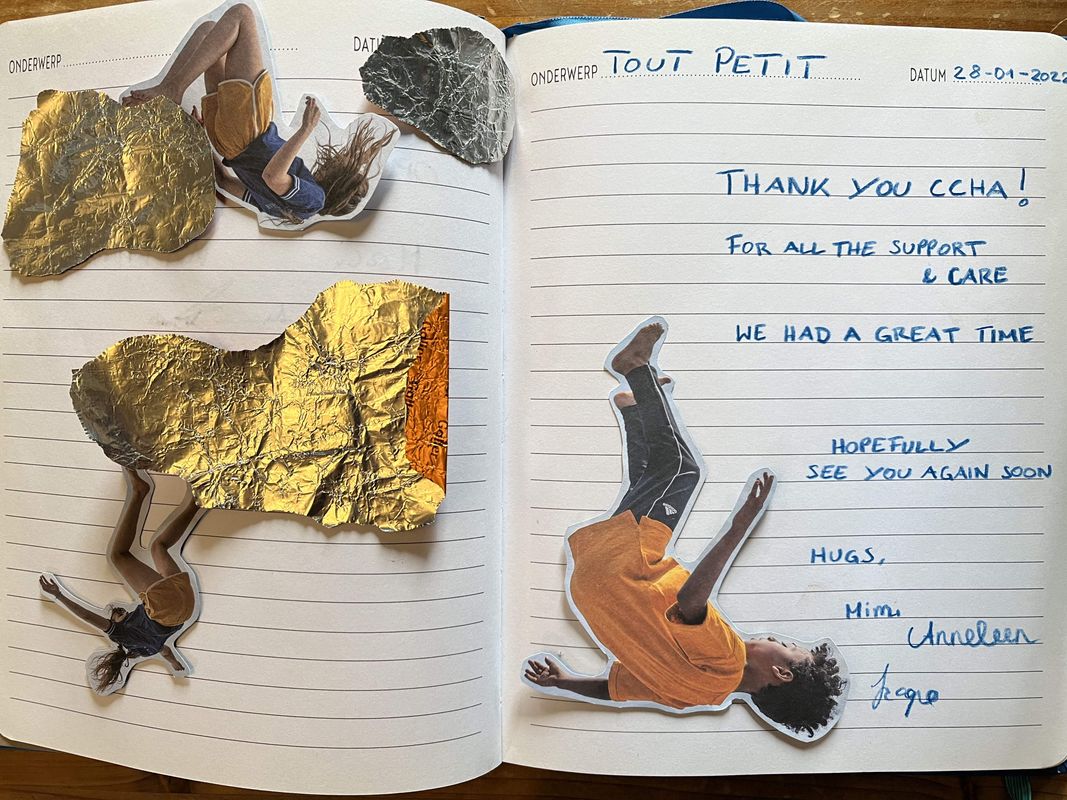 ONDERWERP
ONDERWERP TOUT PETIT
DATUM 28-01-2022
THANK YOU CCHA!
FOR ALL THE SUPPORT
& CARE
WE HAD A GREAT TIME
HOPEFULLY
SEE YOU AGAIN SOON
HUGS,
Mimi
Anneleen